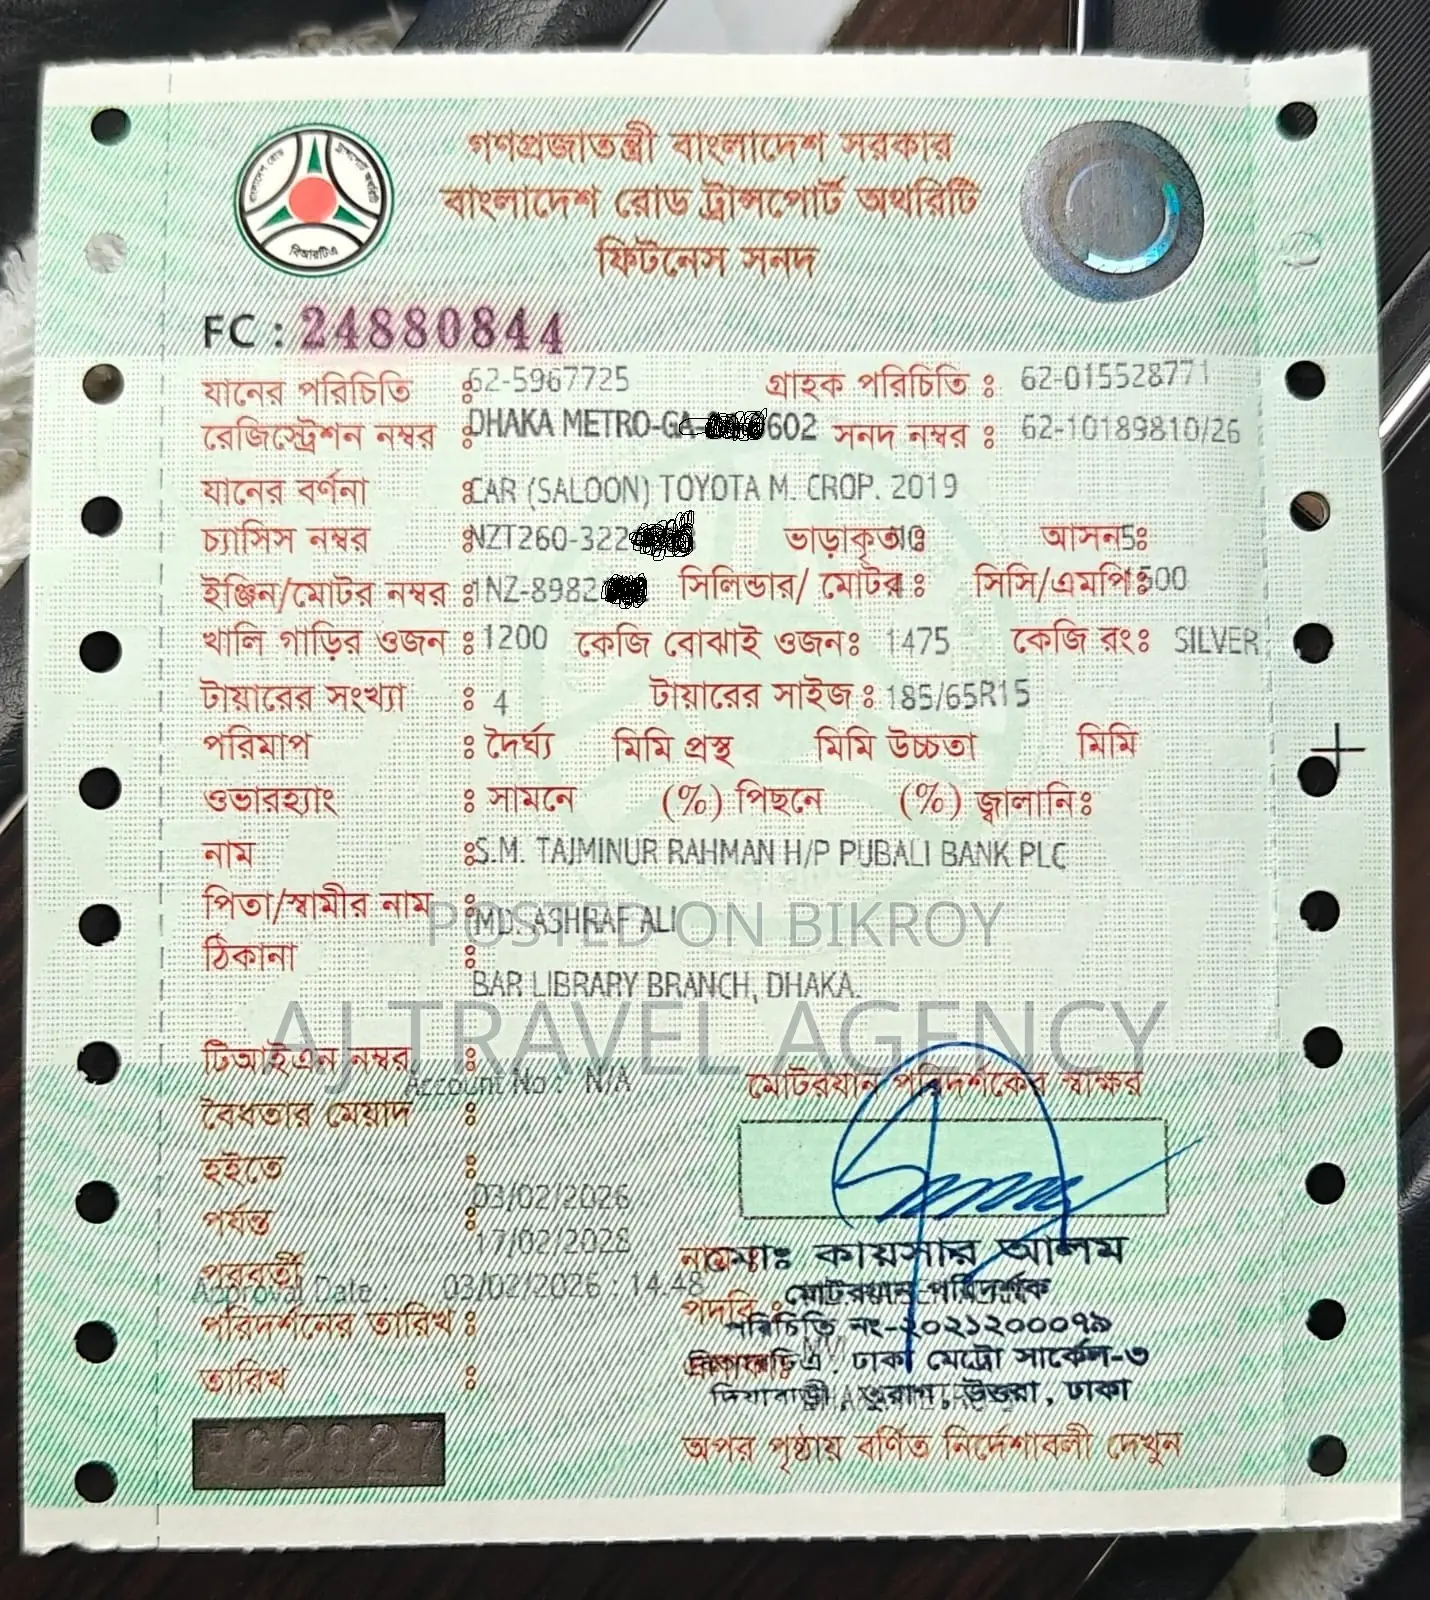 গণপ্রজাতন্ত্রী বাংলাদেশ সরকার
বাংলাদেশ রোড ট্রান্সপোর্ট অথরিটি
ফিটনেস সনদ
বিআরটিএ
FC : 24880844
যানের পরিচিতি : 62-5967725 গ্রাহক পরিচিতি : 62-015528771
রেজিস্ট্রেশন নম্বর : DHAKA METRO-GA- 602 সনদ নম্বর : 62-10189810/26
যানের বর্ণনা : CAR (SALOON) TOYOTA M. CROP. 2019
চ্যাসিস নম্বর : NZT260-322 ভাড়াকৃত আসন : 5
ইঞ্জিন/মোটর নম্বর : 1NZ-8982 সিলিন্ডার/ মোটর : সিসি/এমপি : 1500
খালি গাড়ির ওজন : 1200 কেজি বোঝাই ওজন : 1475 কেজি রং : SILVER
টায়ারের সংখ্যা : 4 টায়ারের সাইজ : 185/65R15
পরিমাপ : দৈর্ঘ্য মিমি প্রস্থ মিমি উচ্চতা মিমি
ওভারহ্যাং : সামনে (%) পিছনে (%) জ্বালানি :
নাম : S.M. TAJMINUR RAHMAN H/P PUBALI BANK PLC
পিতা/স্বামীর নাম : MD. ASHRAF ALI
POSTED ON BIKROY
ঠিকানা : BAR LIBRARY BRANCH, DHAKA.
AJ TRAVEL AGENCY
টিআইএন নম্বর :
Account No : N/A
মোটরযান পরিদর্শকের স্বাক্ষর
বৈধতার মেয়াদ :
হইতে : 03/02/2026
পর্যন্ত : 17/02/2028
নাম মোঃ কায়সার আলম
পরবর্তী
Approval Date : 03/02/2026 : 14.48
পদবি : মোটরযান পরিদর্শক
পরিদর্শনের তারিখ :
পরিচিতি নং-২০২১২০০০৭৯
ঢাকা মেট্রো সার্কেল-৩
তারিখ :
দিয়াবাড়ী, তুরাগ, উত্তরা, ঢাকা
FC2027
অপর পৃষ্ঠায় বর্ণিত নির্দেশাবলী দেখুন